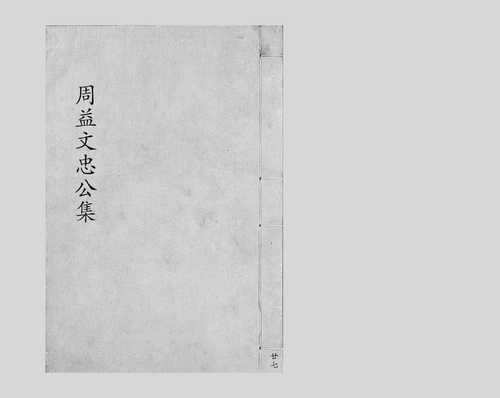 周益文忠公集
廿七